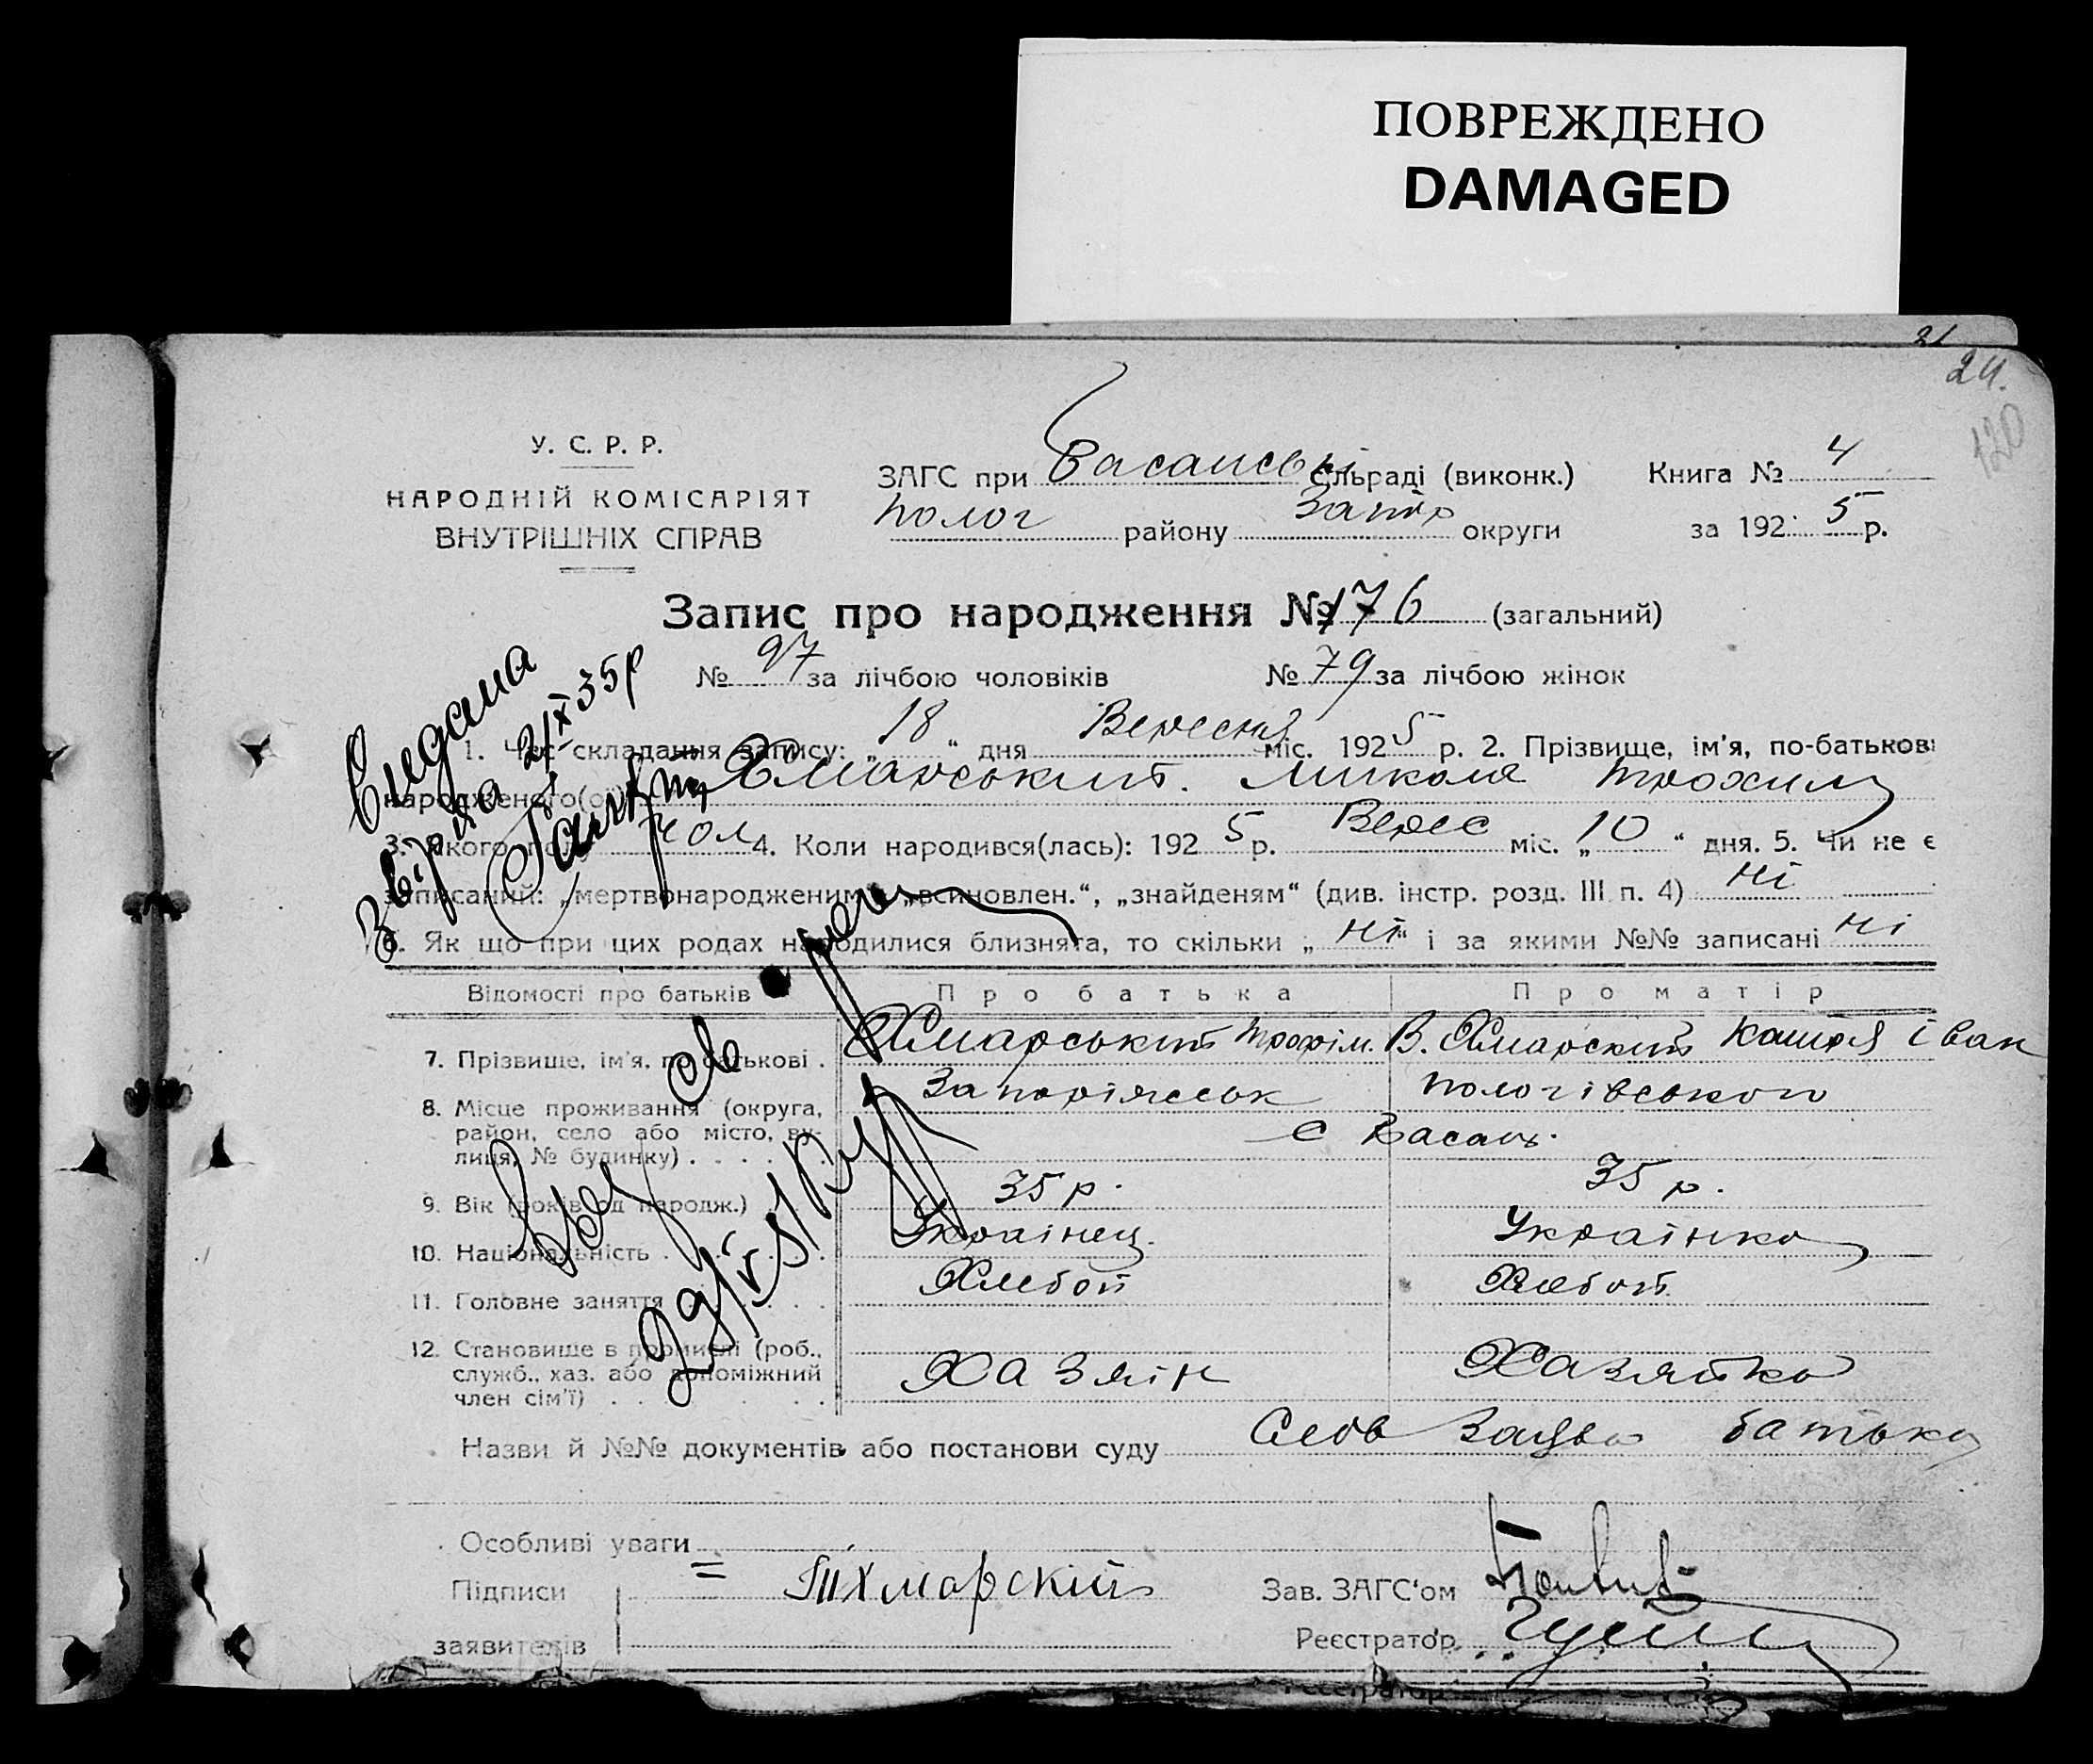 ПОВРЕЖДЕНО
DAMAGED
21
24.
120
У. С. Р. Р.
НАРОДНІЙ КОМІСАРІЯТ
ВНУТРІШНІХ СПРАВ
ЗАГС при Басанські сільраді (виконк.)
Полог району Запор округи
Книга № 4
за 1925 р.
Запис про народження № 176 (загальний)
№ 97 за лічбою чоловіків № 79 за лічбою жінок
1. Час складання запису: „18“ дня Вересня міс. 1925 р. 2. Прізвище, ім'я, по-батькові
народженого(ої) Хмарський. Микола Трохим
3. Якого полу чол 4. Коли народився(лась): 1925 р. Верес міс. „10“ дня. 5. Чи не є
записаний: „мертвонародженим“, „всиновлен.“, „знайденям“ (див. інстр. розд. III п. 4) ні
6. Як що при цих родах народилися близнята, то скільки „ні“ і за якими №№ записані ні
Видана
21/X 35р
Відомості про батьків Про батька Про матір
7. Прізвище, ім'я, по батькові . Хмарський Трофім. В. Хмарский Катря Іван
8. Місце проживання (округа, район, село або місто, вулиця, № будинку) . . . . Запоріжськ Пологівського
с Басань.
9. Вік (років од народж.) 35 р. 35 р.
10. Національність . . . . Українец. Українка
11. Головне заняття . . . . Хлебоп Хлебоп.
12. Становище в промислі (роб., служб., хаз. або допоміжний член сім'ї) . . . . Хазяін Хазяйка
Назви й №№ документів або постанови суду Слов заява батька
Особливі уваги =
Підписи заявителів Хмарскій
Зав. ЗАГС'ом
Реєстратор